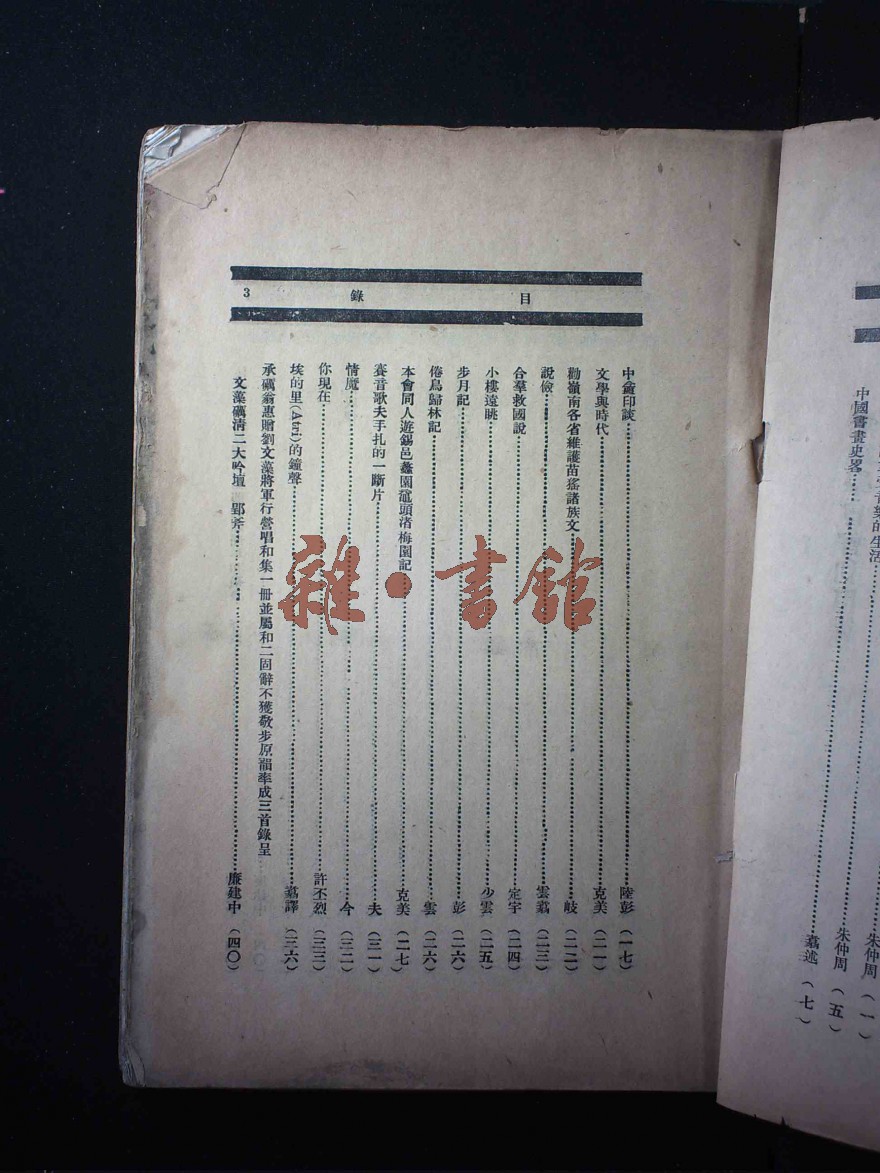 目錄 3
中龕印談 陸彭 (一七)
文學與時代 克美 (二一)
勸嶺南各省維護苗瑤諸族文 岐 (二二)
說儉 雲翥 (二三)
合羣救國說 定宇 (二四)
小樓遠眺 少雲 (二五)
步月記 彭 (二六)
倦鳥歸林記 雲 (二六)
本會同人遊錫邑蠡園黿頭渚梅園記 克美 (二七)
賽音歌夫手扎的一斷片 夫 (三一)
情魔 今 (三二)
你現在 許丕烈 (三三)
埃的里(Atri)的鐘聲 翥譯 (三六)
承礪翁惠贈劉文藻將軍行營唱和集一冊並屬和二固辭不獲敬步原韻率成三首錄呈
文藻礪清二大吟壇 郢斧 廉建中 (四〇)
音樂的生活 朱仲周 (一)
中國書畫史畧 朱仲周 (五)
翥述 (七)
雜·書館